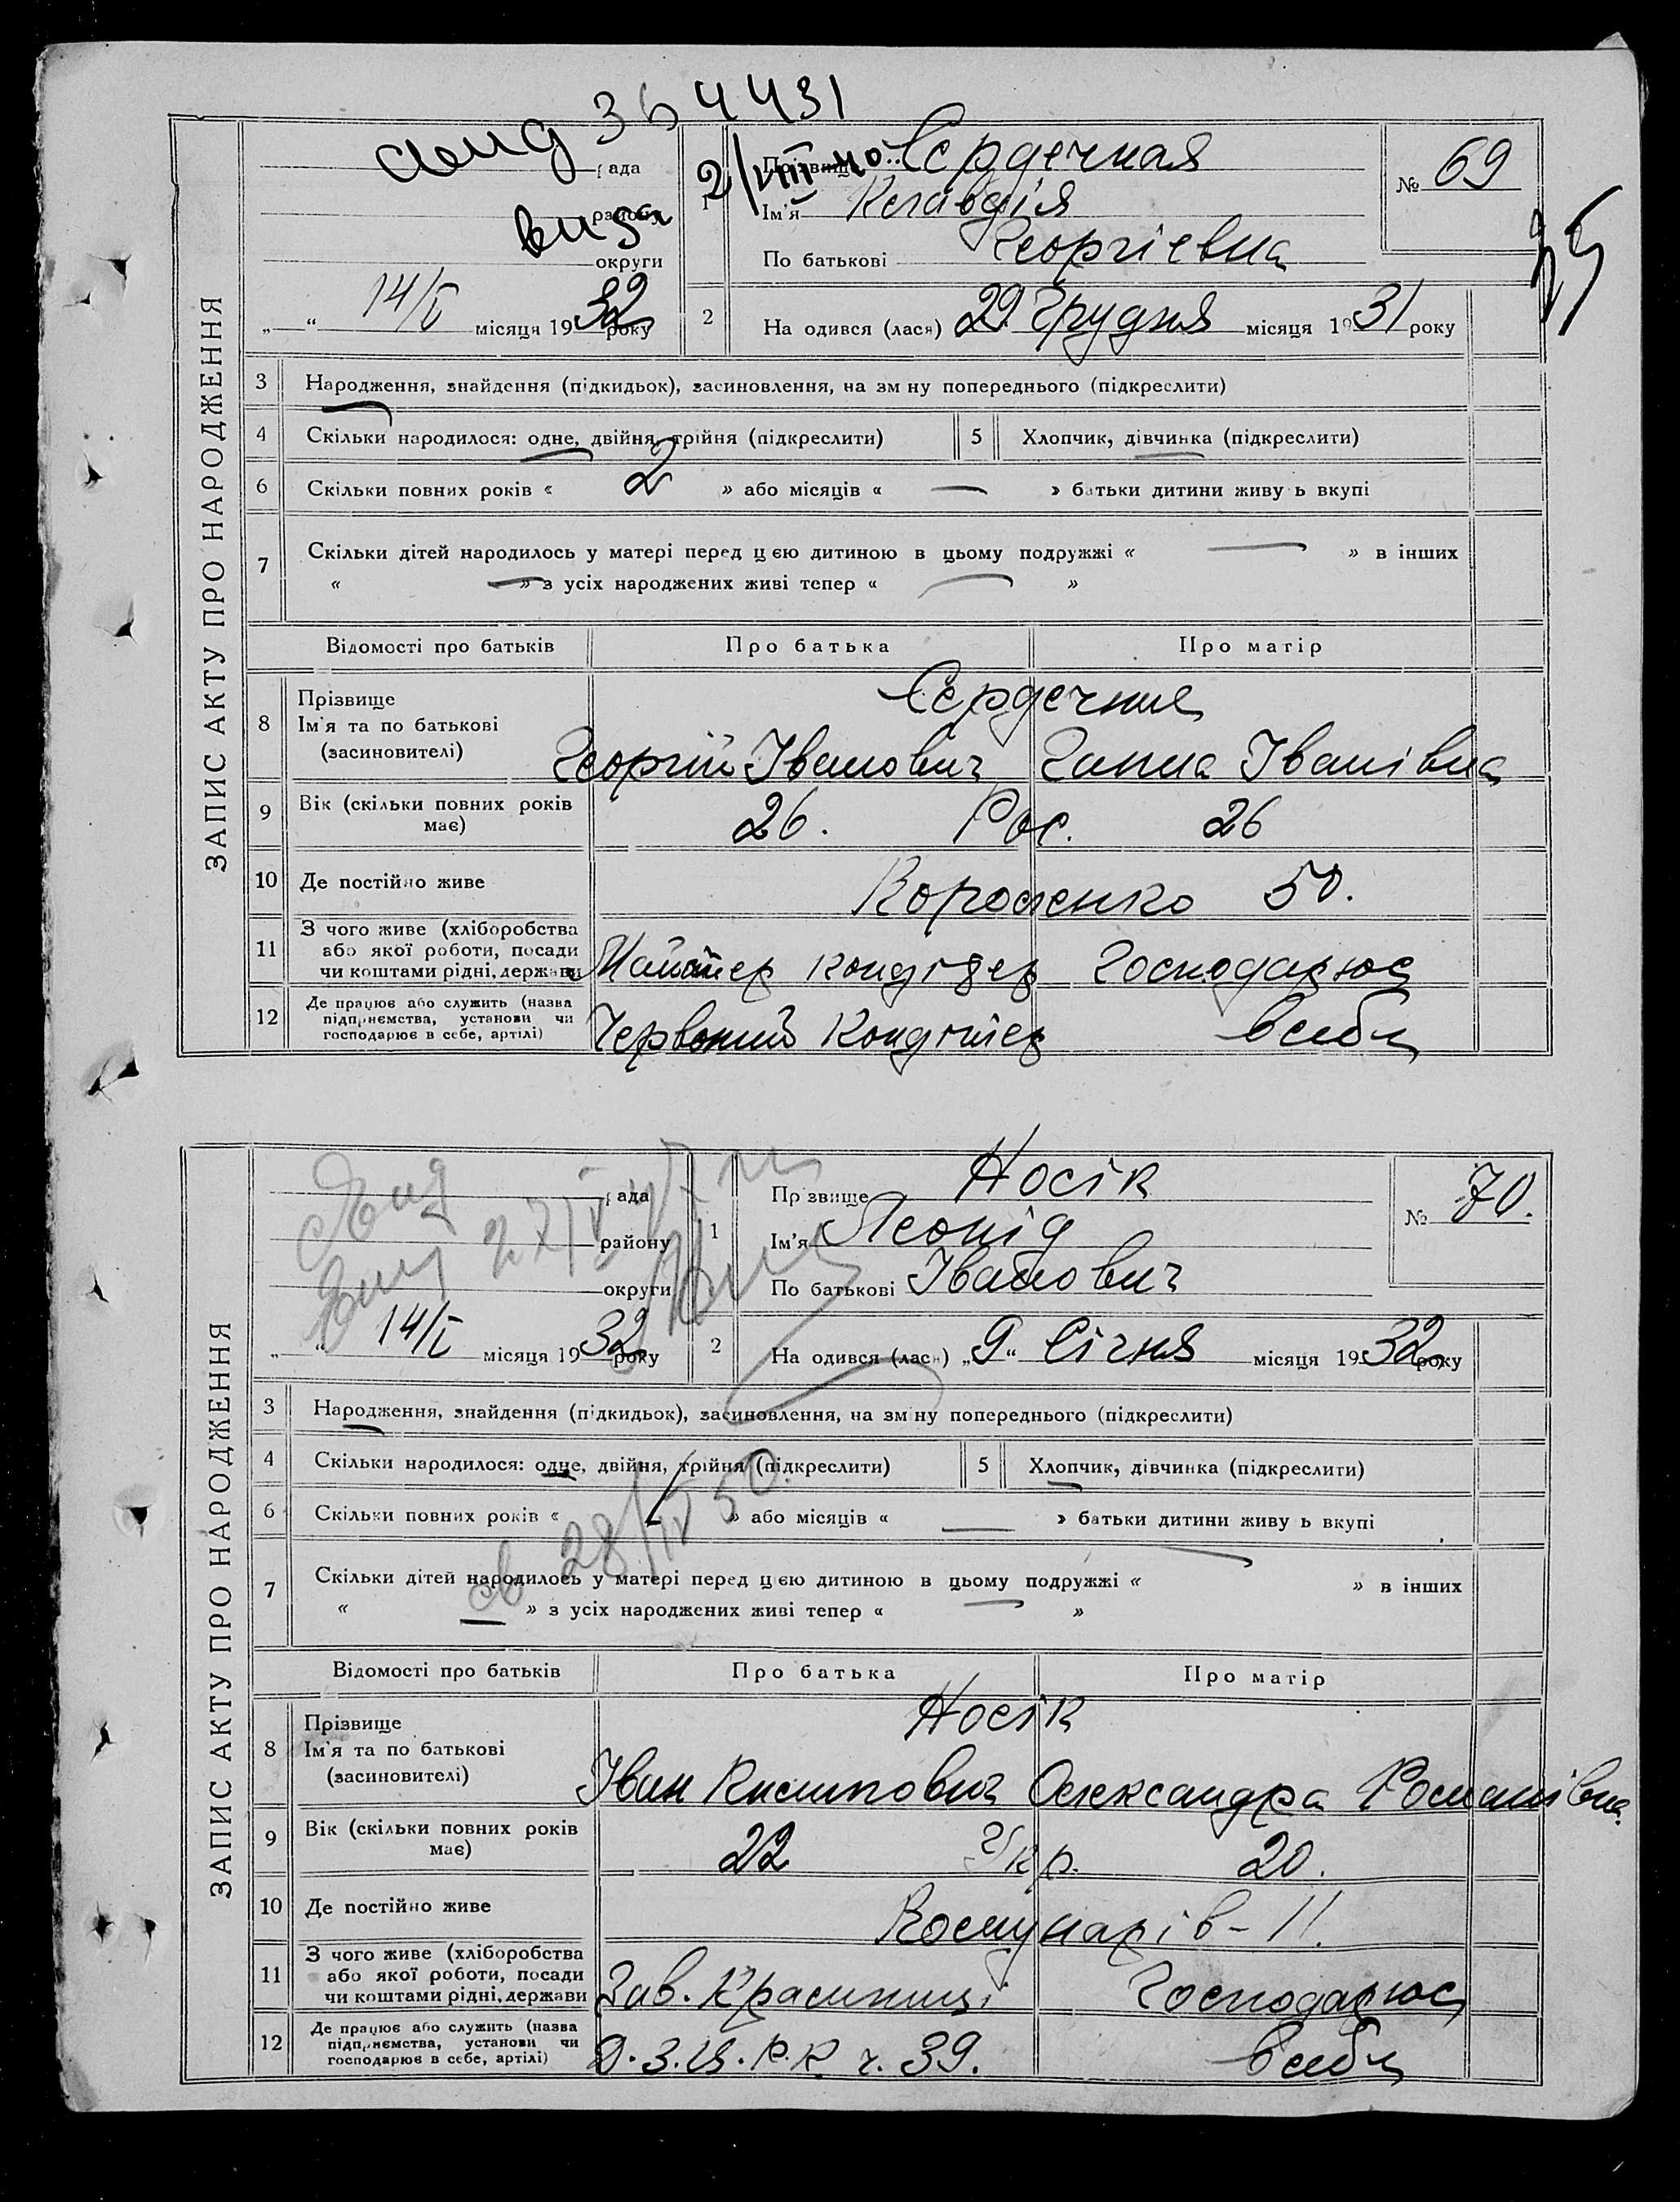 364431
рада
району
округи
„ “ 14/I місяця 1932 року
ЗАПИС АКТУ ПРО НАРОДЖЕННЯ
1
Прізвище Сєрдечная
Ім'я Клавдія
По батькові Георгіевна
№ 69
2
На одився (лася) 29. Грудня місяця 1931 року
3 Народження, знайдення (підкидьок), засиновлення, на зм ну попереднього (підкреслити)
4 Скільки народилося: одне, двійня, трійня (підкреслити)
5 Хлопчик, дівчинка (підкреслити)
6 Скільки повних років « 2 » або місяців « — » батьки дитини живу ь вкупі
7 Скільки дітей народилось у матері перед ц єю дитиною в цьому подружжі « — » в інших
« — » з усіх народжених живі тепер « — »
Відомості про батьків Про батька Про матір
8 Прізвище
Ім'я та по батькові
(засиновителі)
Сєрдечние
Георгий Іванович Ганна Іванівна
9 Вік (скільки повних років
має)
26. Рос. 26
10 Де постійно живе Короленко 50.
11 З чого живе (хліборобства
або якої роботи, посади
чи коштами рідні, держави
кондітер Господарює
12 Де працює або служить (назва
підприємства, установи чи
господарює в себе, артілі)
Червоний Кондітер всебе
рада
району
округи
„ “ 14/I місяця 1932 року
ЗАПИС АКТУ ПРО НАРОДЖЕННЯ
1
Пр звище Носік
Ім'я Леонід
По батькові Іванович
№ 70.
2
На одився (лася) „9“ Січня місяця 1932 року
3 Народження, знайдення (підкидьок), засиновлення, на зм ну попереднього (підкреслити)
4 Скільки народилося: одне, двійня, трійня (підкреслити)
5 Хлопчик, дівчинка (підкреслити)
6 Скільки повних років « » або місяців « — » батьки дитини живу ь вкупі
28/IV 50.
7 Скільки дітей народилось у матері перед ц єю дитиною в цьому подружжі « — » в інших
« — » з усіх народжених живі тепер « — »
Відомості про батьків Про батька Про матір
8 Прізвище
Ім'я та по батькові
(засиновителі)
Носік
Іван Олександра Романівна
9 Вік (скільки повних років
має)
22 Укр. 20.
10 Де постійно живе Комунарів - 11.
11 З чого живе (хліборобства
або якої роботи, посади
чи коштами рідні, держави
Зав. Крамниці Господарює
12 Де працює або служить (назва
підприємства, установи чи
господарює в себе, артілі)
ч. 39. всебе